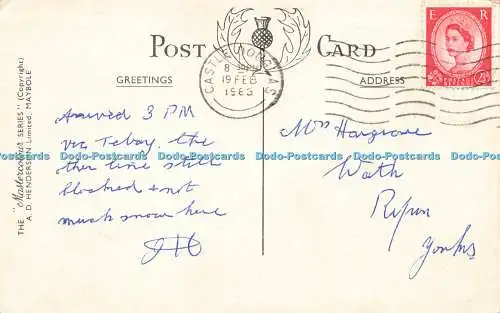 POST CARD
GREETINGS
ADDRESS
THE "Mastercolour SERIES" (Copyright)
A. D. HENDERSON Limited, MAYBOLE
CASTLE DOUGLAS
19 FEB
1963
E R
Arrived 3 PM
via Tebay. the
other line still
blocked & not
much snow here
Mrs Hargrave
Wath
Ripon
Yorks
Dodo-Postcards Dodo-Postcards Dodo-Postcards Dodo-Postcards Dodo-Postcards Dodo-Postcards